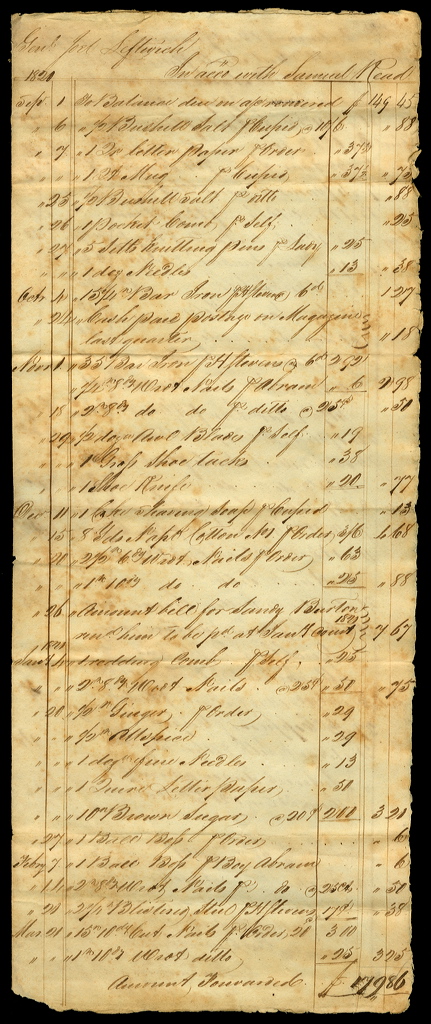 Genl Joel Leftwich
In acco with Samuel Read
1820
Sep 1 To Balance due on acpt rendered $ 149 45
" 6 " 1/2 Bushell Salt pr Cupid @ 10/6 " 88
" 7 " 1 Qr letter paper pr Order " 37 1/2
" " " 1 Mug pr Cupid " 37 1/2 " 75
" 25 " 1/2 Bushell Salt pr ditto " 88
" 26 " 1 Pocket Comb pr Self " 25
" 27 " 5 Setts Knitting pins pr Lady " 25
" " " 1 doz Needles " 13 " 38
Octr 4 " Bar Iron pr H Stevens 6d 1 27
" 24 " Cash paid postage on Magazine
last quarter " 18
Novr 1 " 35 Bar Iron pr H Stevens @ 6d 2 92
" " " 8d Wrot Nails pr Abram " 6 2 98
" 18 " 2 lb 8d do do pr ditto @ 25 " 50
" 29 " 1/2 doz Blades pr Self " 19
" " " 1 Gross Shoe tacks " 38
" " " 1 Shoe Knife " 20 " 77
Decr 11 " 1 Cake Shaving Soap pr Cupid " 13
" 15 " 8 lbs Cotton pr Order 3/6 4 68
" 20 " 2 1/2 lb 6d Wrot Nails pr Order " 63
" " " 1 lb 10d do do " 25 " 88
" 26 " Amount bill for Sandy Burton
him to be pd at Jany Court 1821 7 67
1821
Jany " 1 redding Comb pr Self " 25
" " " 2 lb 8d Wrot Nails @ 25 " 50 " 75
" 20 " 1/2 lb Ginger pr Order " 29
" " " 1/2 lb Allspice " 29
" " " 1 doz fine Needles " 13
" " " 1 Quire Letter Paper " 50
" " " 10 lb Brown Sugar @ 20 2 00 3 21
" 27 " 1 Ball pr Order " 6
Feby 7 " 1 Ball pr Boy Abram " 6
" 14 " 2 lb 8d Wrot Nails pr do @ 25 " 50
" 24 " Blistered Steel pr H Stevens " 38
Mar 21 " 15 lb Cut Nails pr Order 20 3 00
" " " 1 lb 10d Wrot ditto " 25 3 25
Amount Forwarded $